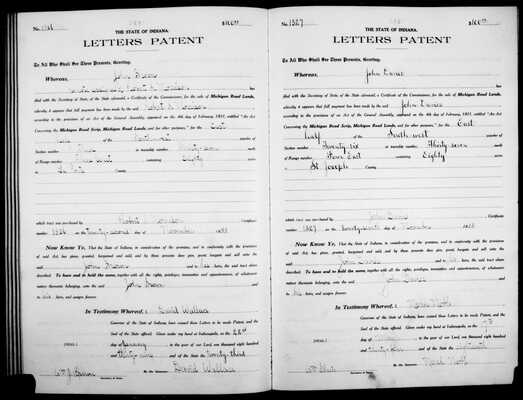 No. $100.00
THE STATE OF INDIANA.
LETTERS PATENT
To All Who Shall See These Presents, Greeting:
Whereas,
filed with the Secretary of State, of the State aforesaid, a Certificate of the Commissioner, for the sale of Michigan Road Lands,
whereby it appears that full payment has been made by the said
according to the provisions of an Act of the General Assembly, approved on the 4th day of February, 1831, entitled "An Act
Concerning the Michigan Road Scrip, Michigan Road Lands, and for other purposes," for the East
of the
Section number of Township number
of Range number containing Eighty
County
which tract was purchased by Certificate
number 1326 on the twenty-second day of November 18
Now Know Ye, That the State of Indiana, in consideration of the premises, and in conformity with the provisions
of said Act, have given, granted, bargained and sold and by these presents doeth give, grant, bargain and sell unto the
said and to his heirs, the said tract above
described: To have and to hold the same, together with all the rights, privileges, immunities and appurtenances, of whatsoever
nature thereunto belonging, unto the said
and to his heirs, and assigns forever.
In Testimony Whereof, I David Wallace
Governor of the State of Indiana, have caused these Letters to be made Patent, and the Seal
of the State affixed. Given under my hand at Indianapolis, on the 22d
(SEAL) day of January in the year of our Lord, one thousand eight hundred
and thirty nine and of the State the twenty third
By the Governor: David Wallace
Secretary of State.
No. 1327 $100.00
THE STATE OF INDIANA.
LETTERS PATENT
To All Who Shall See These Presents, Greeting:
Whereas, John
filed with the Secretary of State, of the State aforesaid, a Certificate of the Commissioner, for the sale of Michigan Road Lands,
whereby it appears that full payment has been made by the said John
according to the provisions of an Act of the General Assembly, approved on the 4th day of February, 1831, entitled "An Act
Concerning the Michigan Road Scrip, Michigan Road Lands, and for other purposes," for the East
half of the South west
Section number Twenty six of Township number Thirty seven
of Range number Four East containing Eighty
St Joseph County
which tract was purchased by John Certificate
number 1327 on the twenty-ninth day of November 18
Now Know Ye, That the State of Indiana, in consideration of the premises, and in conformity with the provisions
of said Act, have given, granted, bargained and sold and by these presents doeth give, grant, bargain and sell unto the
said John and to his heirs, the said tract above
described: To have and to hold the same, together with all the rights, privileges, immunities and appurtenances, of whatsoever
nature thereunto belonging, unto the said John
and to his heirs, and assigns forever.
In Testimony Whereof, I Noah Noble
Governor of the State of Indiana, have caused these Letters to be made Patent, and the Seal of the
State affixed. Given under my hand at Indianapolis, on the 7th
(SEAL) day of in the year of our Lord, one thousand eight hundred
and and of the State the
By the Governor: Noah Noble
Secretary of State.